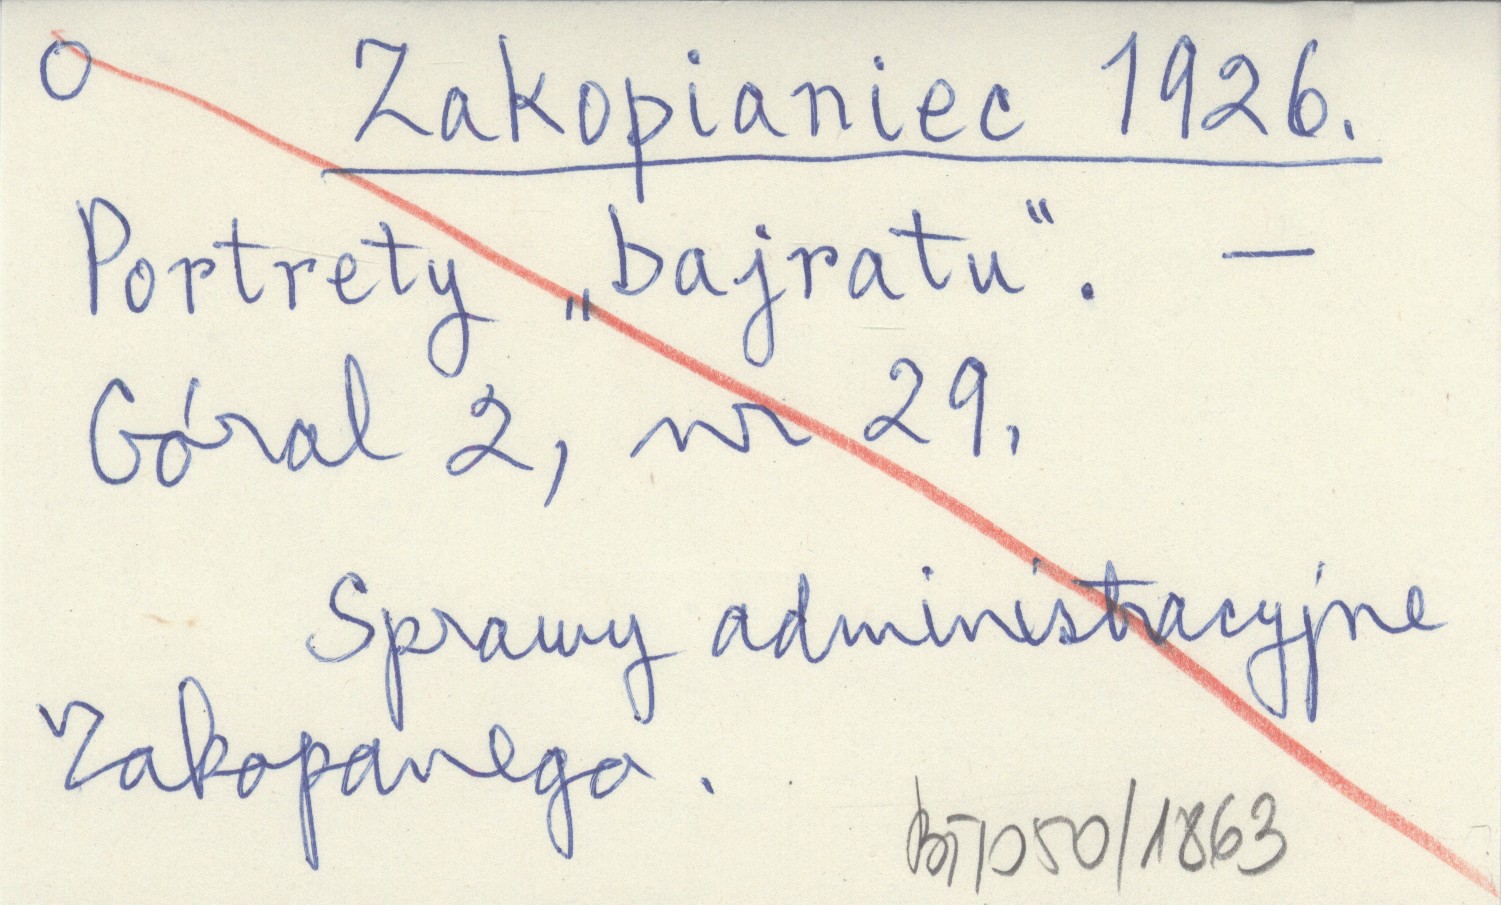 O Zakopianiec 1926.
Portrety „bajratu“. —
Góral 2, nr 29.
Sprawy administracyjne
Zakopanego.
BT/050/1863